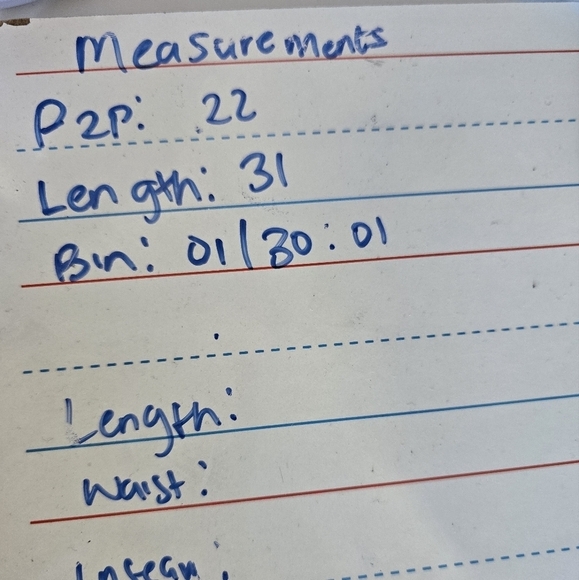 Measurements
P2P: 22
Length: 31
Bin: 01/30:01
Length:
Waist:
Inseam: